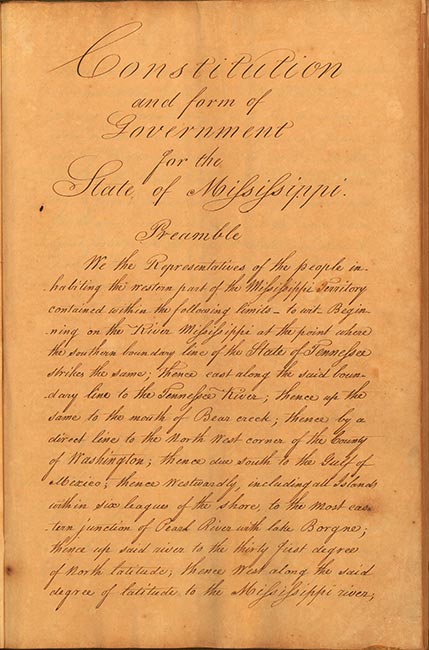 Constitution
and form of
Government
for the
State of Mississippi.
Preamble
We the Representatives of the people in-
habiting the western part of the Mississippi Territory
contained within the following limits – to wit Begin-
ning on the River Mississippi at the point where
the southern boundary line of the State of Tennessee
strikes the same; thence east along the said boun-
dary line to the Tennessee River; thence up the
same to the mouth of Bear creek; thence by a
direct line to the North West corner of the County
of Washington; thence due south to the Gulf of
Mexico; thence Westwardly, including all Islands
within six leagues of the shore, to the most eas-
tern junction of Pearl River with lake Borgne;
thence up said river to the thirty first degree
of North latitude; thence West along the said
degree of latitude to the Mississippi river;